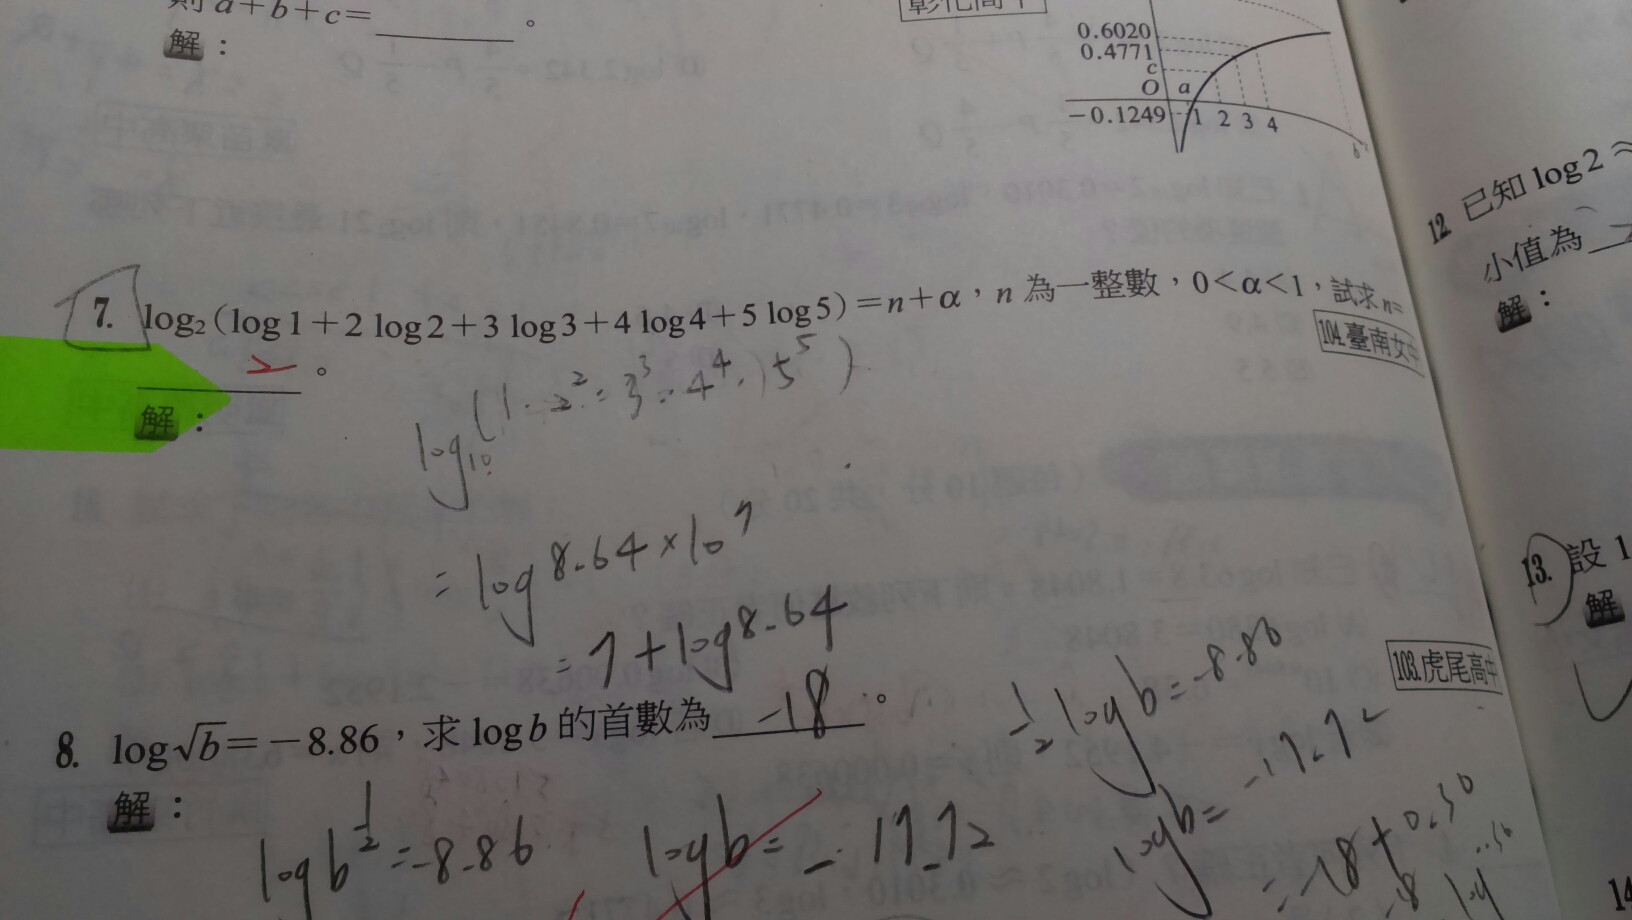 則 a+b+c= 。
解：
彰化高中
0.6020
0.4771
c
O a
-0.1249 1 2 3 4
b
7. log₂(log1+2log2+3log3+4log4+5log5)=n+α，n 為一整數，0<α<1，試求 n=
104.臺南女中
2 。
解：
log₁₀(1·2²·3³·4⁴·5⁵)
=log8.64×10⁷
=7+log8.64
103.虎尾高中
8. log√b=-8.86，求 logb 的首數為 -18 。
解：
logb^½=-8.86
logb=-17.72
½logb=-8.86
logb=-17.72
=-18+
12. 已知 log2≈
小值為
解：
13. 設 1
解
14